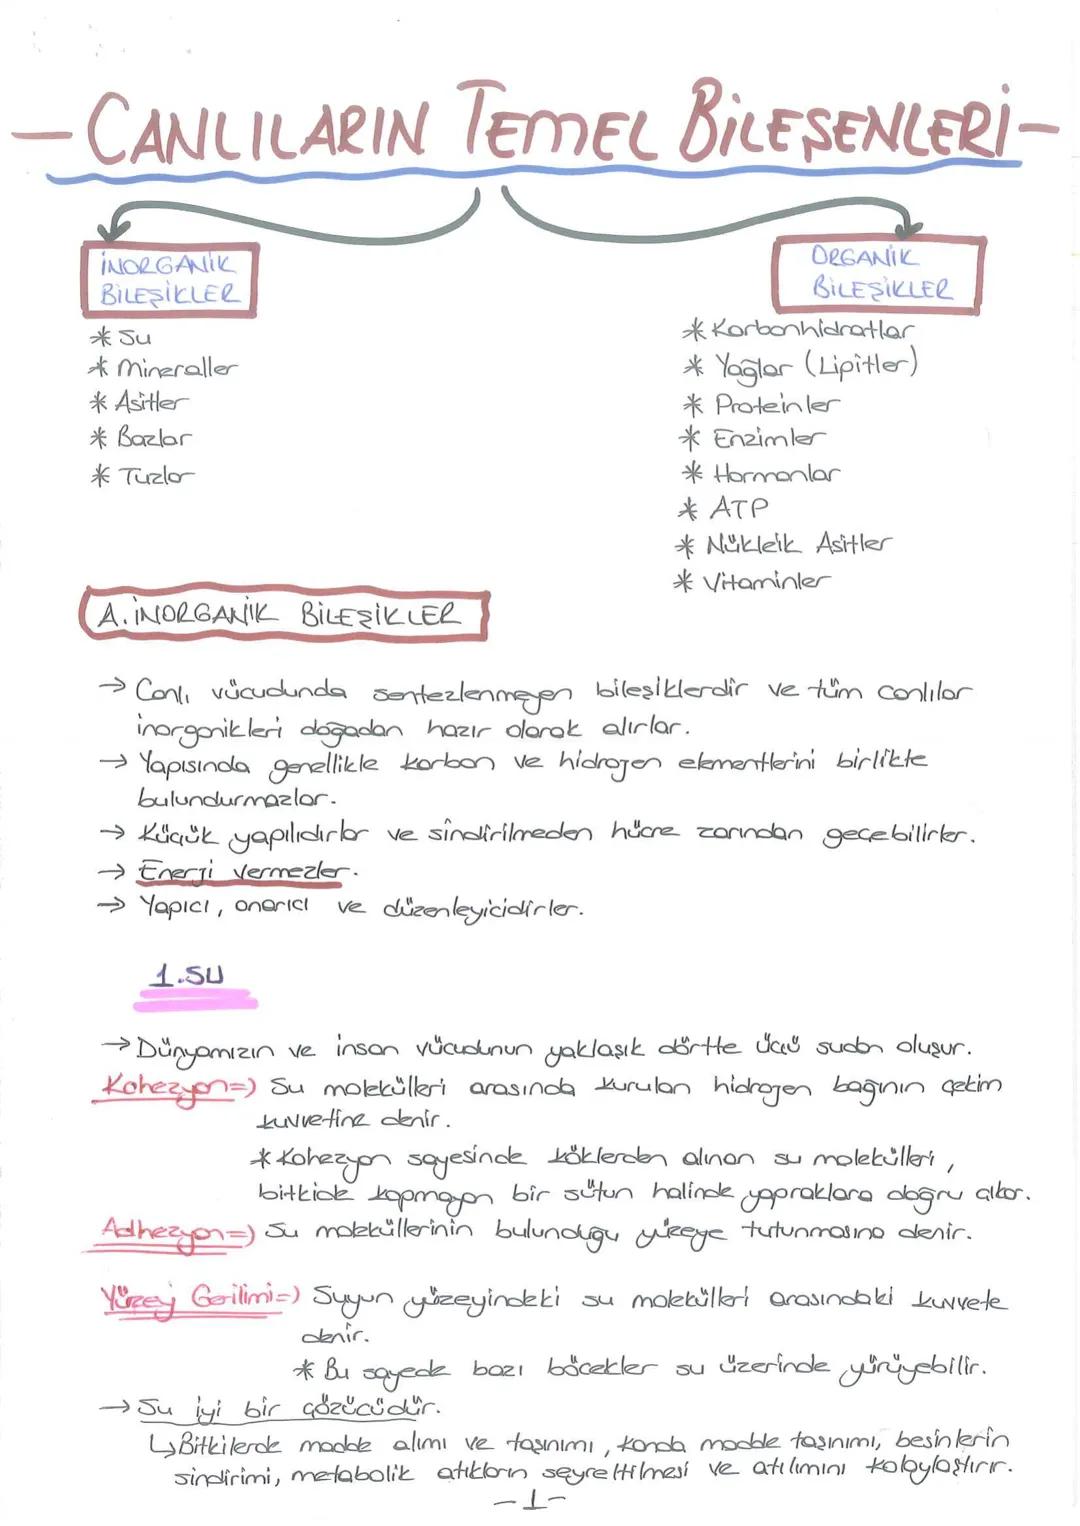 - CANLILARIN TEMEL BİLEŞENLERİ -
İNORGANİK
BİLEŞİKLER
* Su
* Mineraller
* Asitler
* Bazlar
* Tuzlar
ORGANİK
BİLEŞİKLER
* Karbonhidratlar
* Yağlar (Lipitler)
* Proteinler
* Enzimler
* Hormonlar
* ATP
* Nükleik Asitler
* Vitaminler
A. İNORGANİK BİLEŞİKLER
→ Canlı vücudunda sentezlenmeyen bileşiklerdir ve tüm canlılar
inorganikleri doğadan hazır olarak alırlar.
→ Yapısında genellikle karbon ve hidrojen elementlerini birlikte
bulundurmazlar.
→ Küçük yapılıdırlar ve sindirilmeden hücre zarından geçebilirler.
→ Enerji vermezler.
→ Yapıcı, onarıcı ve düzenleyicidirler.
1.SU
→ Dünyamızın ve insan vücudunun yaklaşık dörtte üçü sudan oluşur.
Kohezyon=) Su molekülleri arasında kurulan hidrojen bağının çekim
kuvvetine denir.
* Kohezyon sayesinde köklerden alınan su molekülleri,
bitkide kopmayan bir sütun halinde yapraklara doğru çıkar.
Adhezyon=) Su moleküllerinin bulunduğu yüzeye tutunmasına denir.
Yüzey Gerilimi=) Suyun yüzeyindeki su molekülleri arasındaki kuvvete
denir.
* Bu sayede bazı böcekler su üzerinde yürüyebilir.
→ Su iyi bir çözücüdür.
↳ Bitkilerde madde alımı ve taşınımı, kanda madde taşınımı, besinlerin
sindirimi, metabolik atıkların seyreltilmesi ve atılımını kolaylaştırır.
-1-